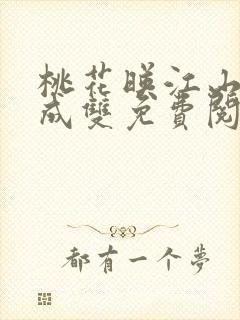 桃花暎江山
成雙免費閱
都有一个夢